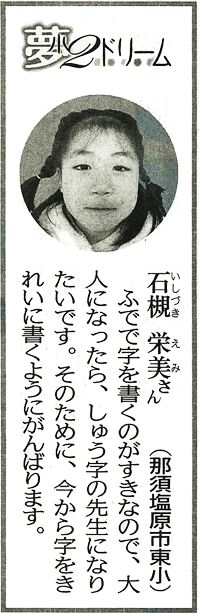 夢小2ドリーム
石槻 栄美さん
いしづき えみ
(那須塩原市東小)
ふでで字を書くのがすきなので、大
人になったら、しゅう字の先生になり
たいです。そのために、今から字をき
れいに書くようにがんばります。